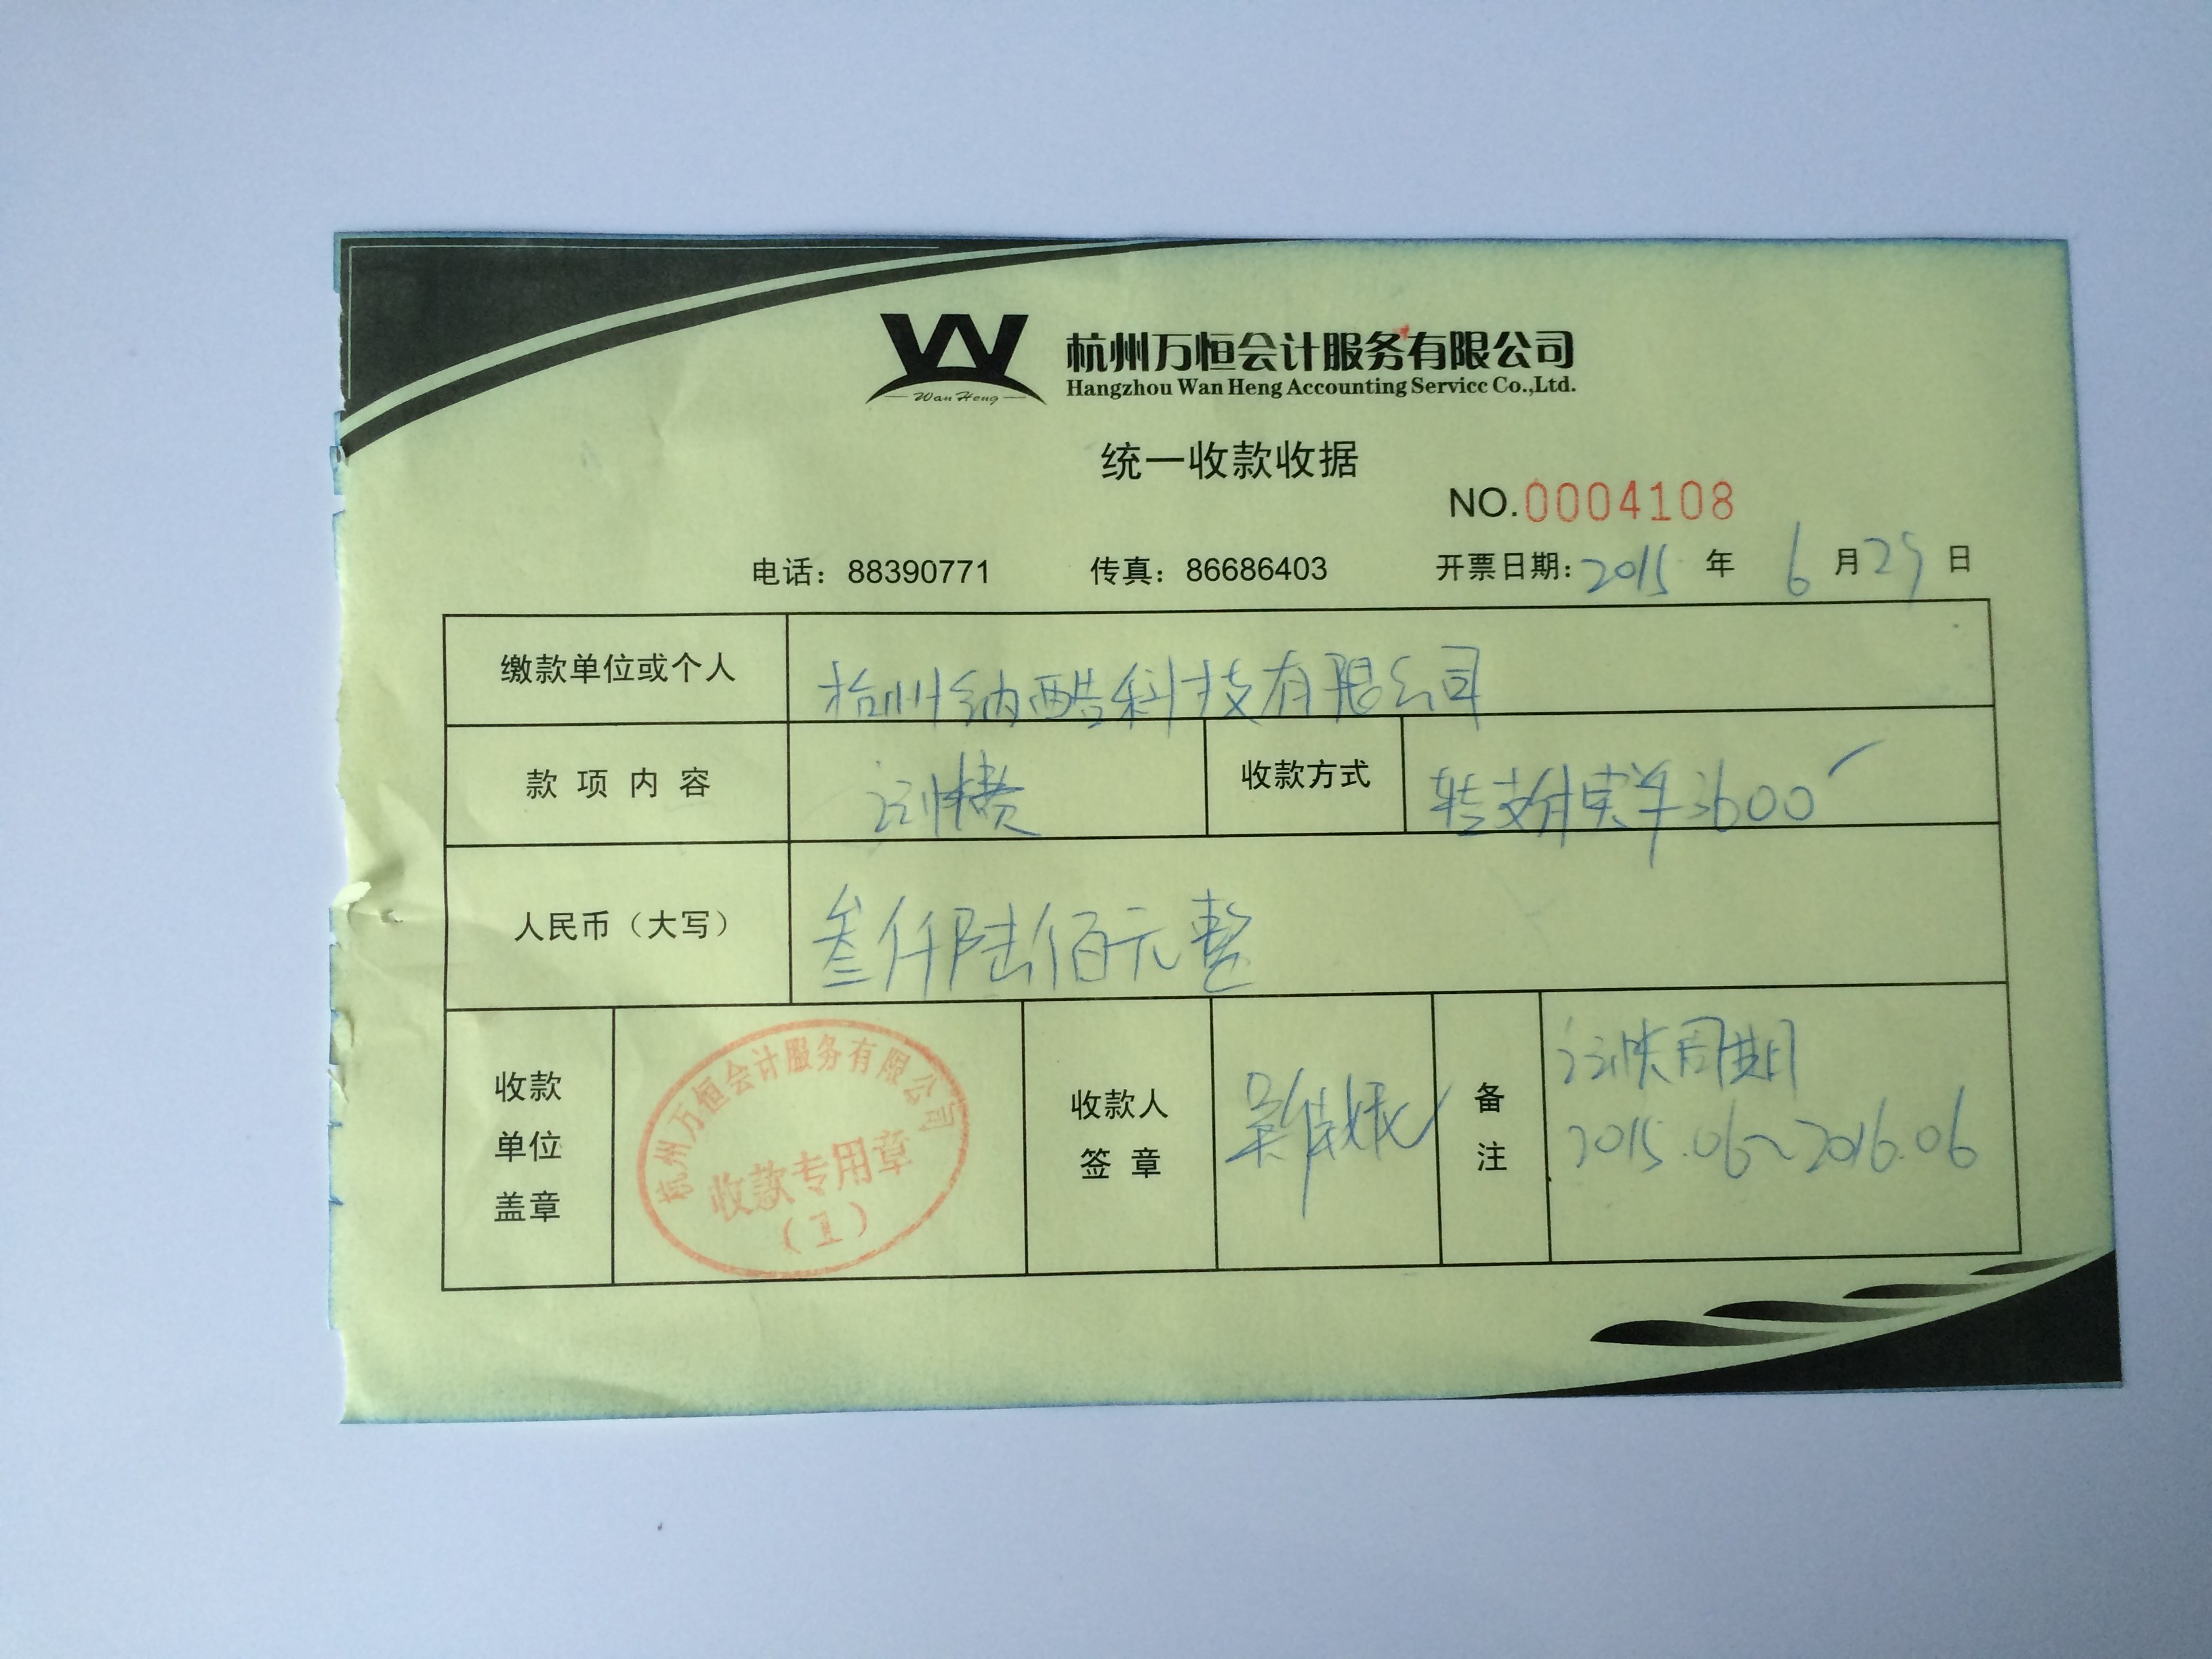 Wan Heng
杭州万恒会计服务有限公司
Hangzhou Wan Heng Accounting Servicc Co.,Ltd.
统一收款收据
NO.0004108
电话：88390771 传真：86686403 开票日期：2015 年 6 月 29 日
缴款单位或个人 杭州纳酷科技有限公司
款项内容 记帐费 收款方式 转支付宝 3600
人民币（大写） 叁仟陆佰元整
收款单位盖章
杭州万恒会计服务有限公司
收款专用章
（1）
收款人签章
备注 记帐周期
2015.06~2016.06